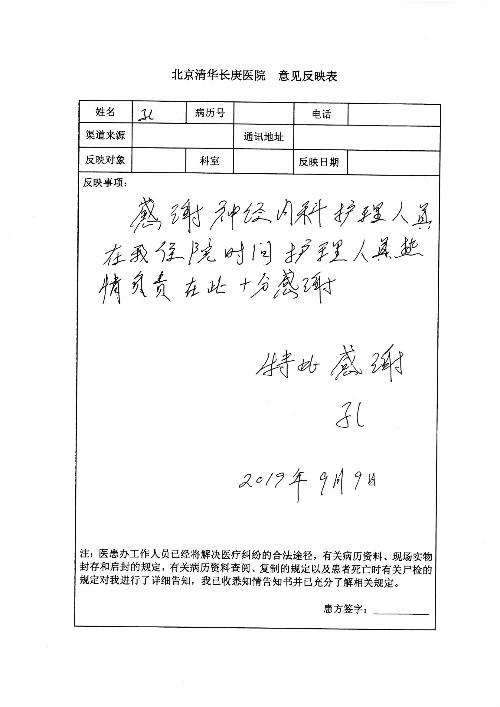 北京清华长庚医院 意见反映表
姓名 孔 病历号 电话
渠道来源 通讯地址
反映对象 科室 反映日期
反映事项：
感谢神经内科护理人员
在我住院时间护理人员热
情负责在此十分感谢
特此感谢
孔
2019年9月9日
注：医患办工作人员已经将解决医疗纠纷的合法途径，有关病历资料、现场实物
封存和启封的规定，有关病历资料查阅、复制的规定以及患者死亡时有关尸检的
规定对我进行了详细告知，我已收悉知情告知书并已充分了解相关规定。
患方签字：